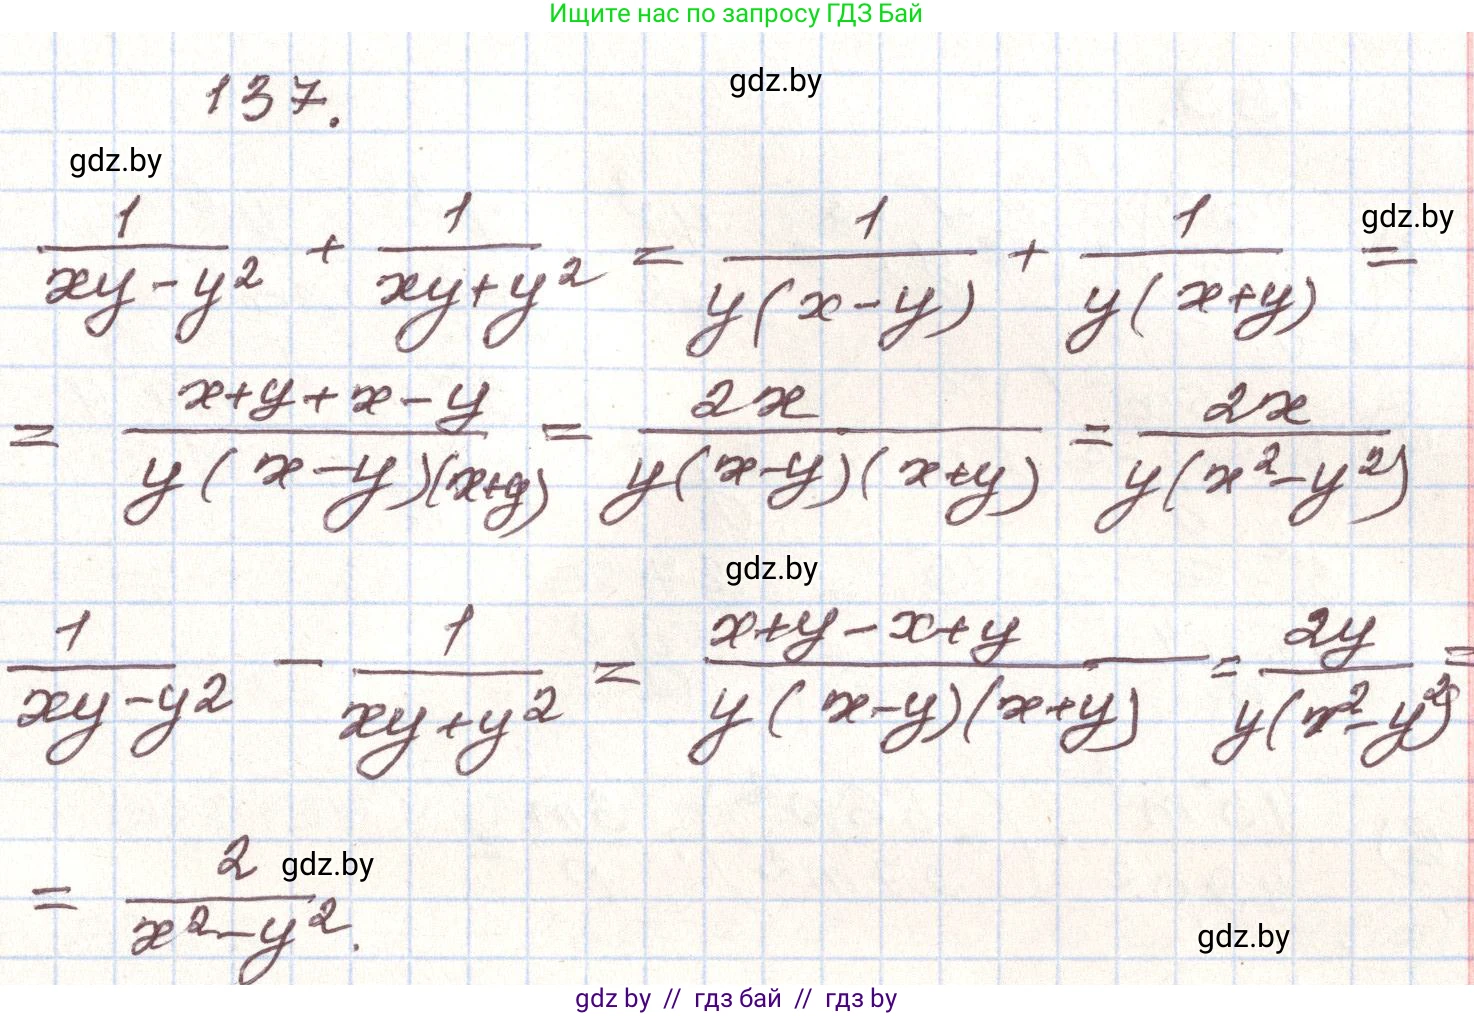 Ищите нас по запросу ГДЗ Бай
137.
gdz.by
gdz.by
gdz.by
1/(xy-y²) + 1/(xy+y²) = 1/(y(x-y)) + 1/(y(x+y)) =
= (x+y+x-y)/(y(x-y)(x+y)) = 2x/(y(x-y)(x+y)) = 2x/(y(x²-y²))
gdz.by
1/(xy-y²) - 1/(xy+y²) = (x+y-x+y)/(y(x-y)(x+y)) = 2y/(y(x²-y²)) =
= 2/(x²-y²).
gdz.by
gdz.by
gdz by // гдз бай // гдз by